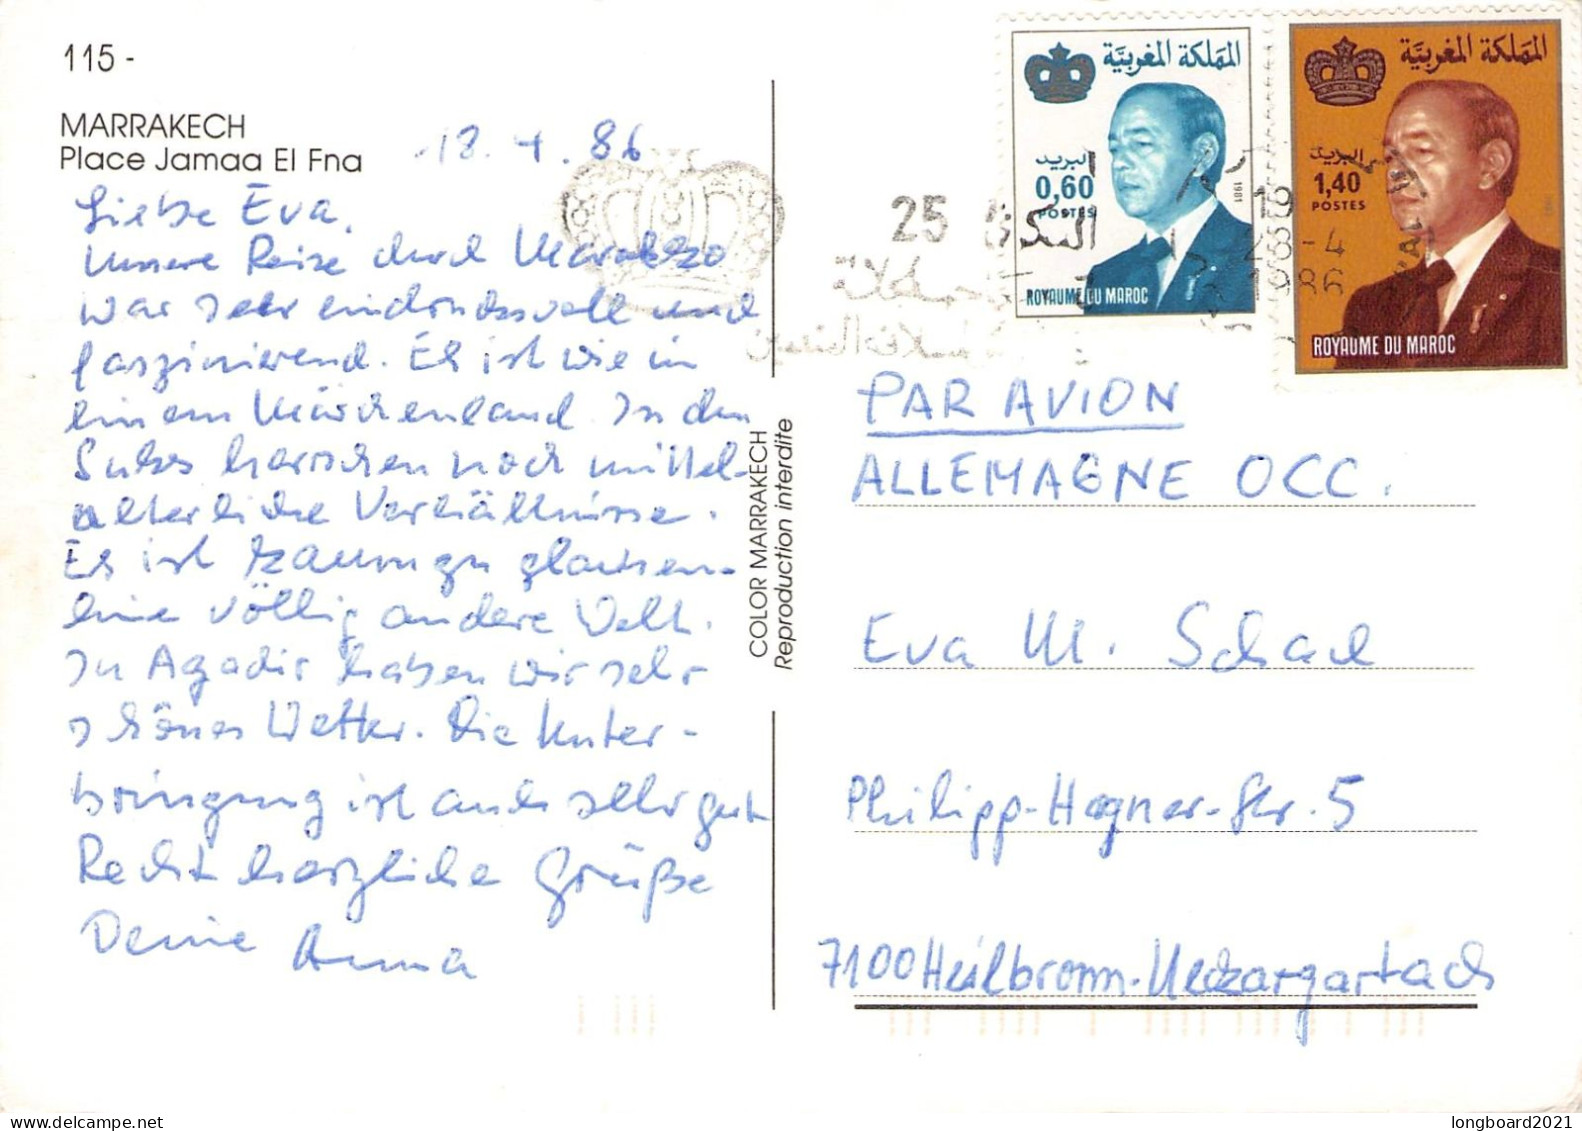 115 -
MARRAKECH
Place Jamaa El Fna
18. 4. 86
Liebe Eva,
Unsere Reise durch Marokko
war sehr eindrucksvoll und
faszinierend. Es ist wie in
einem Märchenland. In den
Suks herrschen noch mittel-
alterliche Verhältnisse.
Es ist kaum zu glauben -
eine völlig andere Welt.
In Agadir haben wir sehr
schönes Wetter. Die Unter-
bringung ist auch sehr gut
Recht herzliche Grüße
Deine Anna
COLOR MARRAKECH
Reproduction interdite
المملكة المغربية
البريد
0,60
POSTES
1981
ROYAUME DU MAROC
المملكة المغربية
البريد
1,40
POSTES
ROYAUME DU MAROC
25
19
28-4
1986
PAR AVION
ALLEMAGNE OCC.
Eva M. Schal
Philipp-Hagner-Str. 5
7100 Heilbronn-Neckargartach
longboard2021